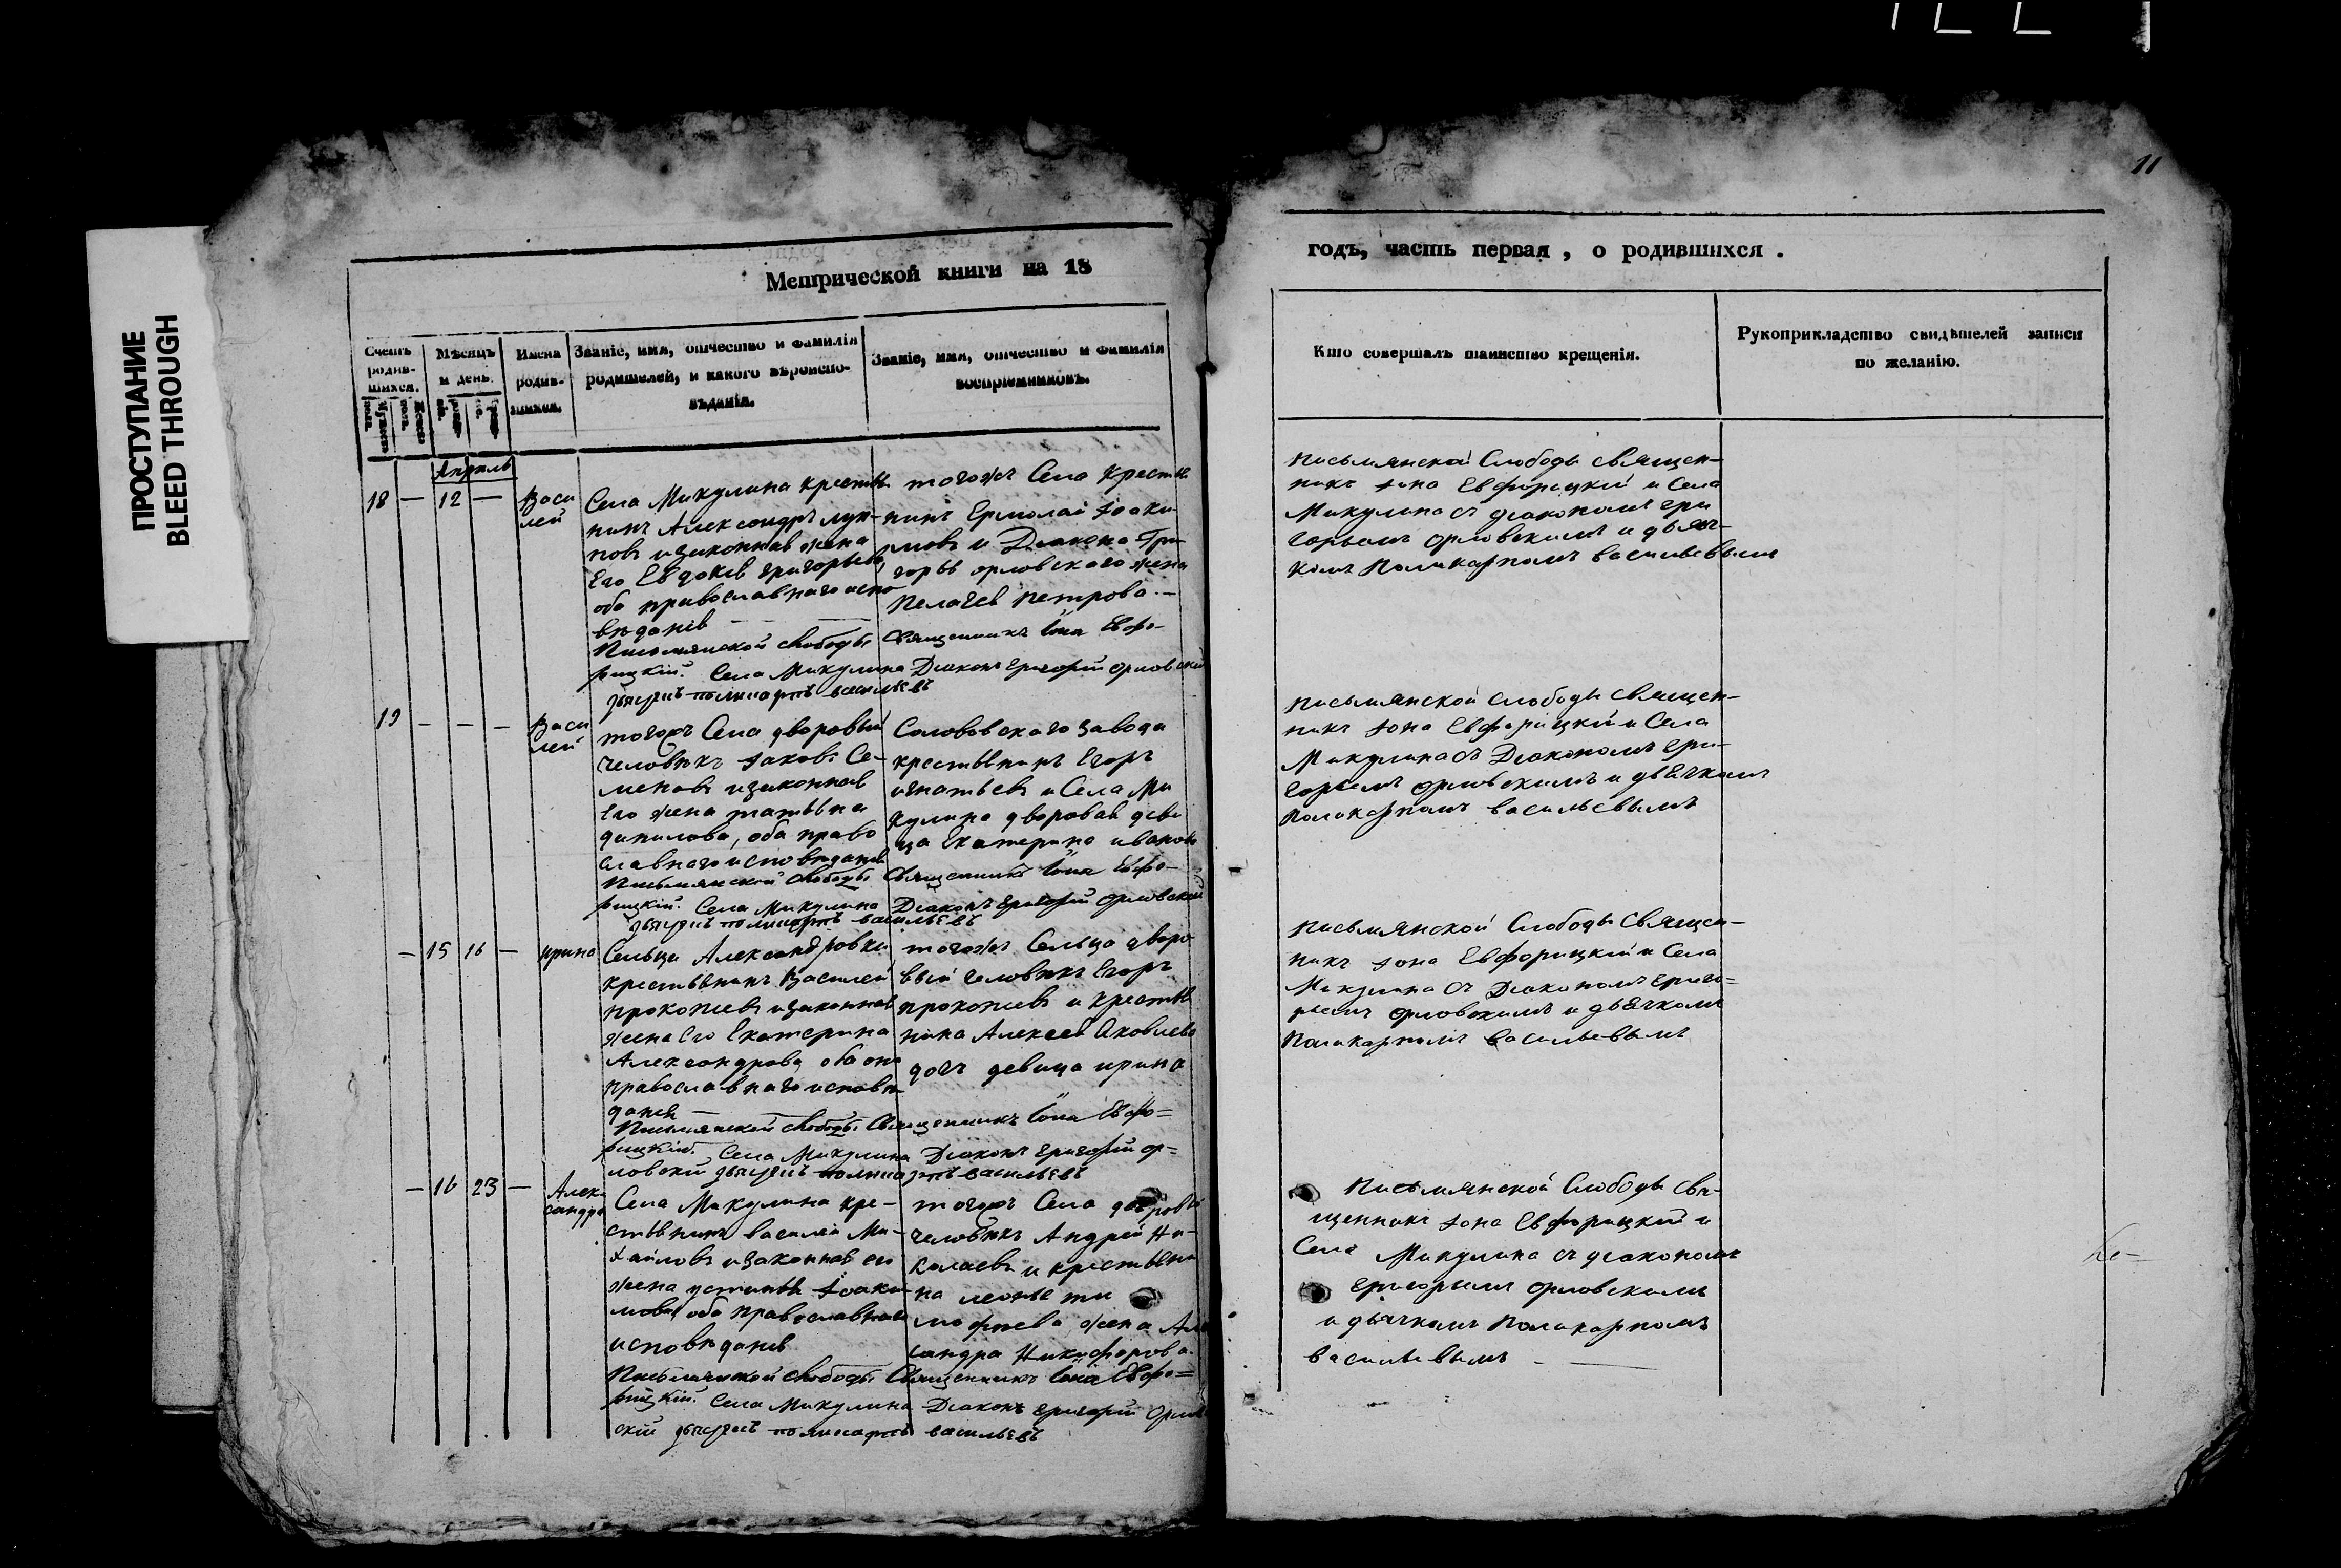 ПРОСТУПАНИЕ
BLEED THROUGH
11
Метрической книги на 18
годъ, часть первая, о родившихся.
Счетъ родив-шихся.
Мѣсяцъ и день.
Имена родив-шихся.
Званіе, имя, отчество и фамилія родителей, и какого вѣроиспо-вѣданія.
Званіе, имя, отчество и фамилія воспріемниковъ.
Кто совершалъ таинство крещенія.
Рукоприкладство свидѣтелей записи по желанію.
Апрель
18 — 12 —
Васи
лей
Села Микулина крестья
нинъ Александръ лук-
новъ изаконная жена
Его Евдокея григорьева
оба православнаго испо
вѣданія
тогожъ Села Крестья
нинъ Ермолай Іоаки
мовъ и Диакона Гри-
горья орловского жена
Пелагея Петрова.—
Письмянской Слободы священ-
никъ Іона Евфорицкій и Села
Микулина съ диакономъ гри
горьемъ орловскимъ и дьяч-
комъ Поликарпомъ васильевымъ
Письмянской слободы Священникъ Іона Евфо-
рицкій. Села Микулина Діаконъ Григорій Орловскій
дьячекъ поликарпъ васильевъ
19 — — —
Васи
лей
тогожъ Села дворовый
человѣкъ Іаковъ Се-
меновъ изаконная
Его жена татьяна
данилова, оба право
славнаго исповѣданія
Соловскаго завода
крестьянинъ Егоръ
игнатьевъ и Села Ми
кулина дворовая деви
ца Екатерина иванова
Письмянской Слободы Священ-
никъ Іона Евфорицкій и Села
Микулина съ Диакономъ гри-
горьемъ орловскимъ и дьячкомъ
Поликарпомъ васильевымъ
Письмянской слободы Священникъ Іона Евфо-
рицкій. Села Микулина Діаконъ Григорій Орловскій
дьячекъ поликарпъ васильевъ
— 15 16 —
ирина
Сельца Александровки
крестьянинъ Василей
прокопиевъ изаконная
жена Его Екатерина
Александрова оба они
православнаго исповѣ
данія —
тогожъ Сельца дворо
вый человѣкъ Егоръ
прокопиевъ и крестья
нина Алексея Яковлева
дочь девица ирина
Письмянской Слободы Священ-
никъ Іона Евфорицкій и Села
Микулина съ Диакономъ григо-
рьемъ орловскимъ и дьячкомъ
Поликарпомъ васильевымъ
Письмянской слободы Священникъ Іона Евфо=
рицкій. Села Микулина Діаконъ Григорій ор=
ловскій дьячекъ поликарпъ васильевъ
— 16 23 —
Алек
сандра
Села Микулина кре-
стьянинъ василей Ми-
хайловъ изаконная его
жена устинья Іоаки-
мова оба православнаго
исповѣданія
тогожъ Села дворовой
человѣкъ Андрей Ни-
колаевъ и крестьяни
на леонтья ти
мофеева жена Але
ксандра Никифорова.
Письмянской Слободы Свя-
щенникъ Іона Евфорицкій и
Села Микулина съ диакономъ
Григорьемъ орловскимъ
и дьячкомъ Поликарпомъ
васильевымъ —
Письмянской слободы Священникъ Іона Евфо=
рицкій. Села Микулина Діаконъ Григорій Орлов
скій дьячекъ поликарпъ васильевъ